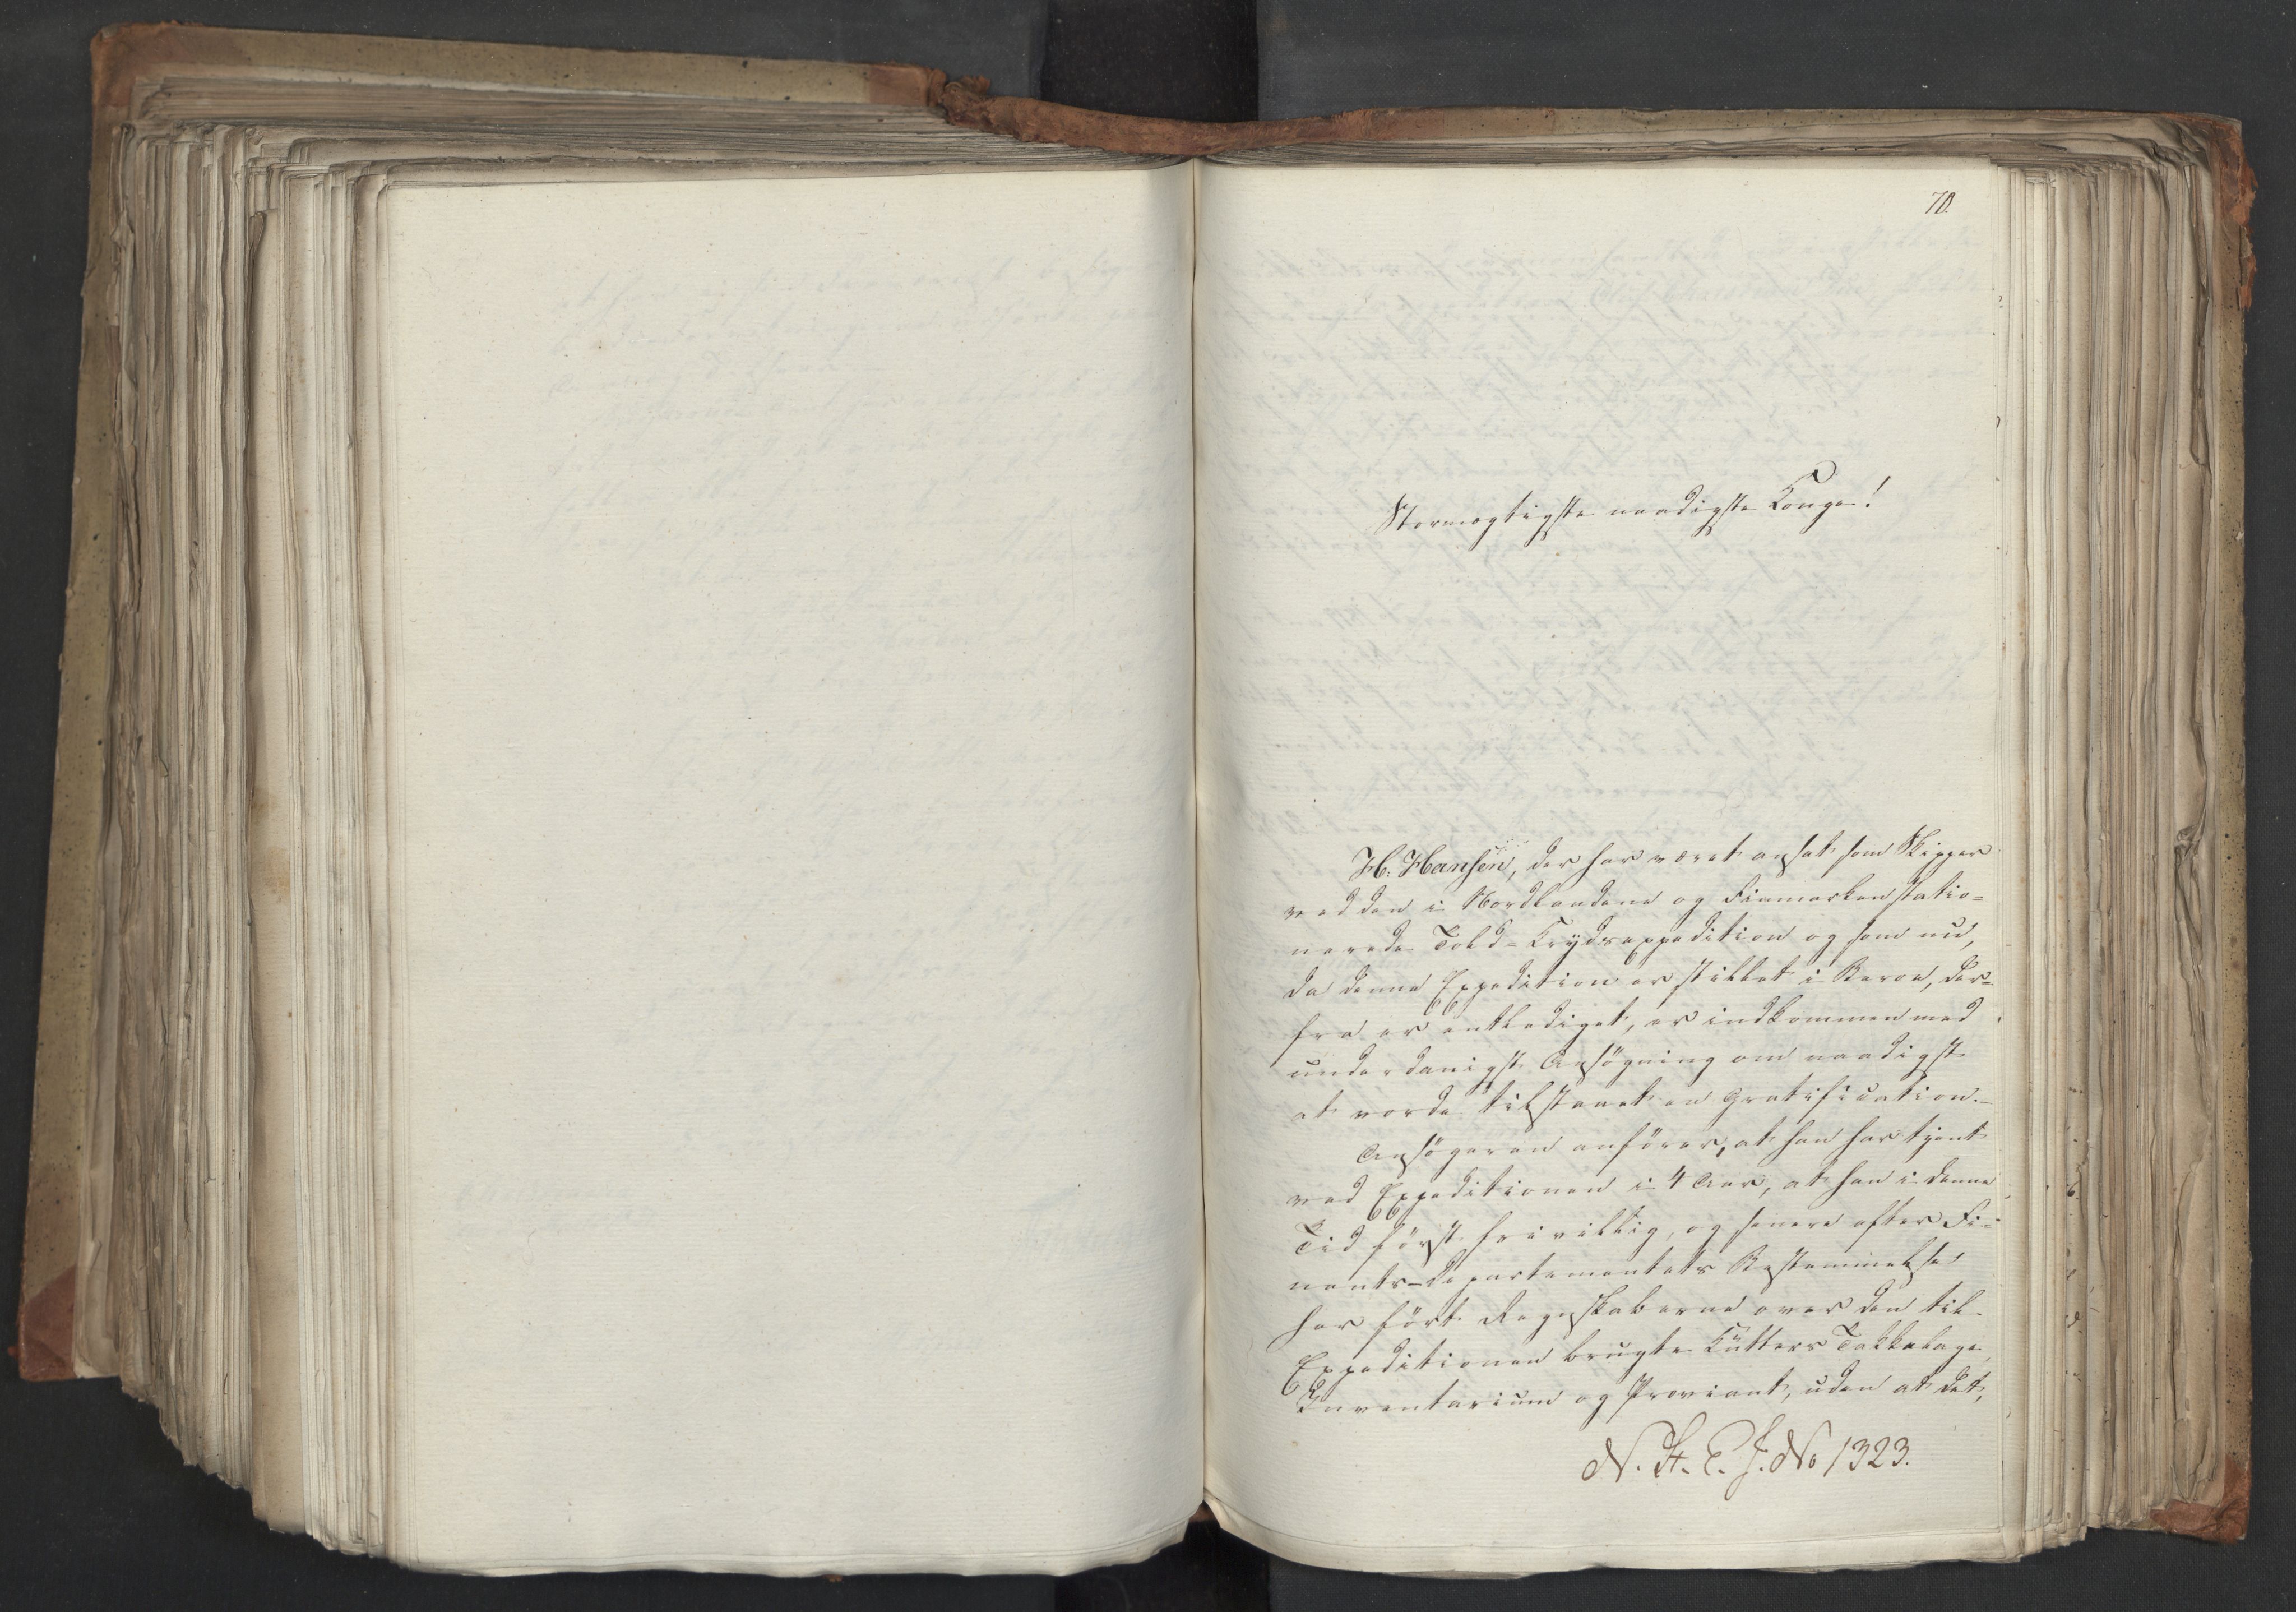 70.
Stormægtigste naadigste Konge!
H. Hansen, der har været ansat som Skipper
ved den i Nordlandene og Finmarken statio-
nerede Told-Krydsexpedition og som nu,
da denne Expedition er stillet i Beroe, der-
fra er entlediget, er indkommen med
underdanigst Ansøgning om naadigst
at vorde tilstaaet en Gratification.-
Ansøgeren anfører, at han har tjent
ved Expeditionen i 4 Aar, at han i denne
Tid først frivillig, og senere efter Fi-
nants-Departementets Bestemmelse
har ført Regnskaberne over den til
Expeditionen brugte Kutters Takkelage,
Inventarium og Proviant, uden at det,
N. St. E. J. No 1323.